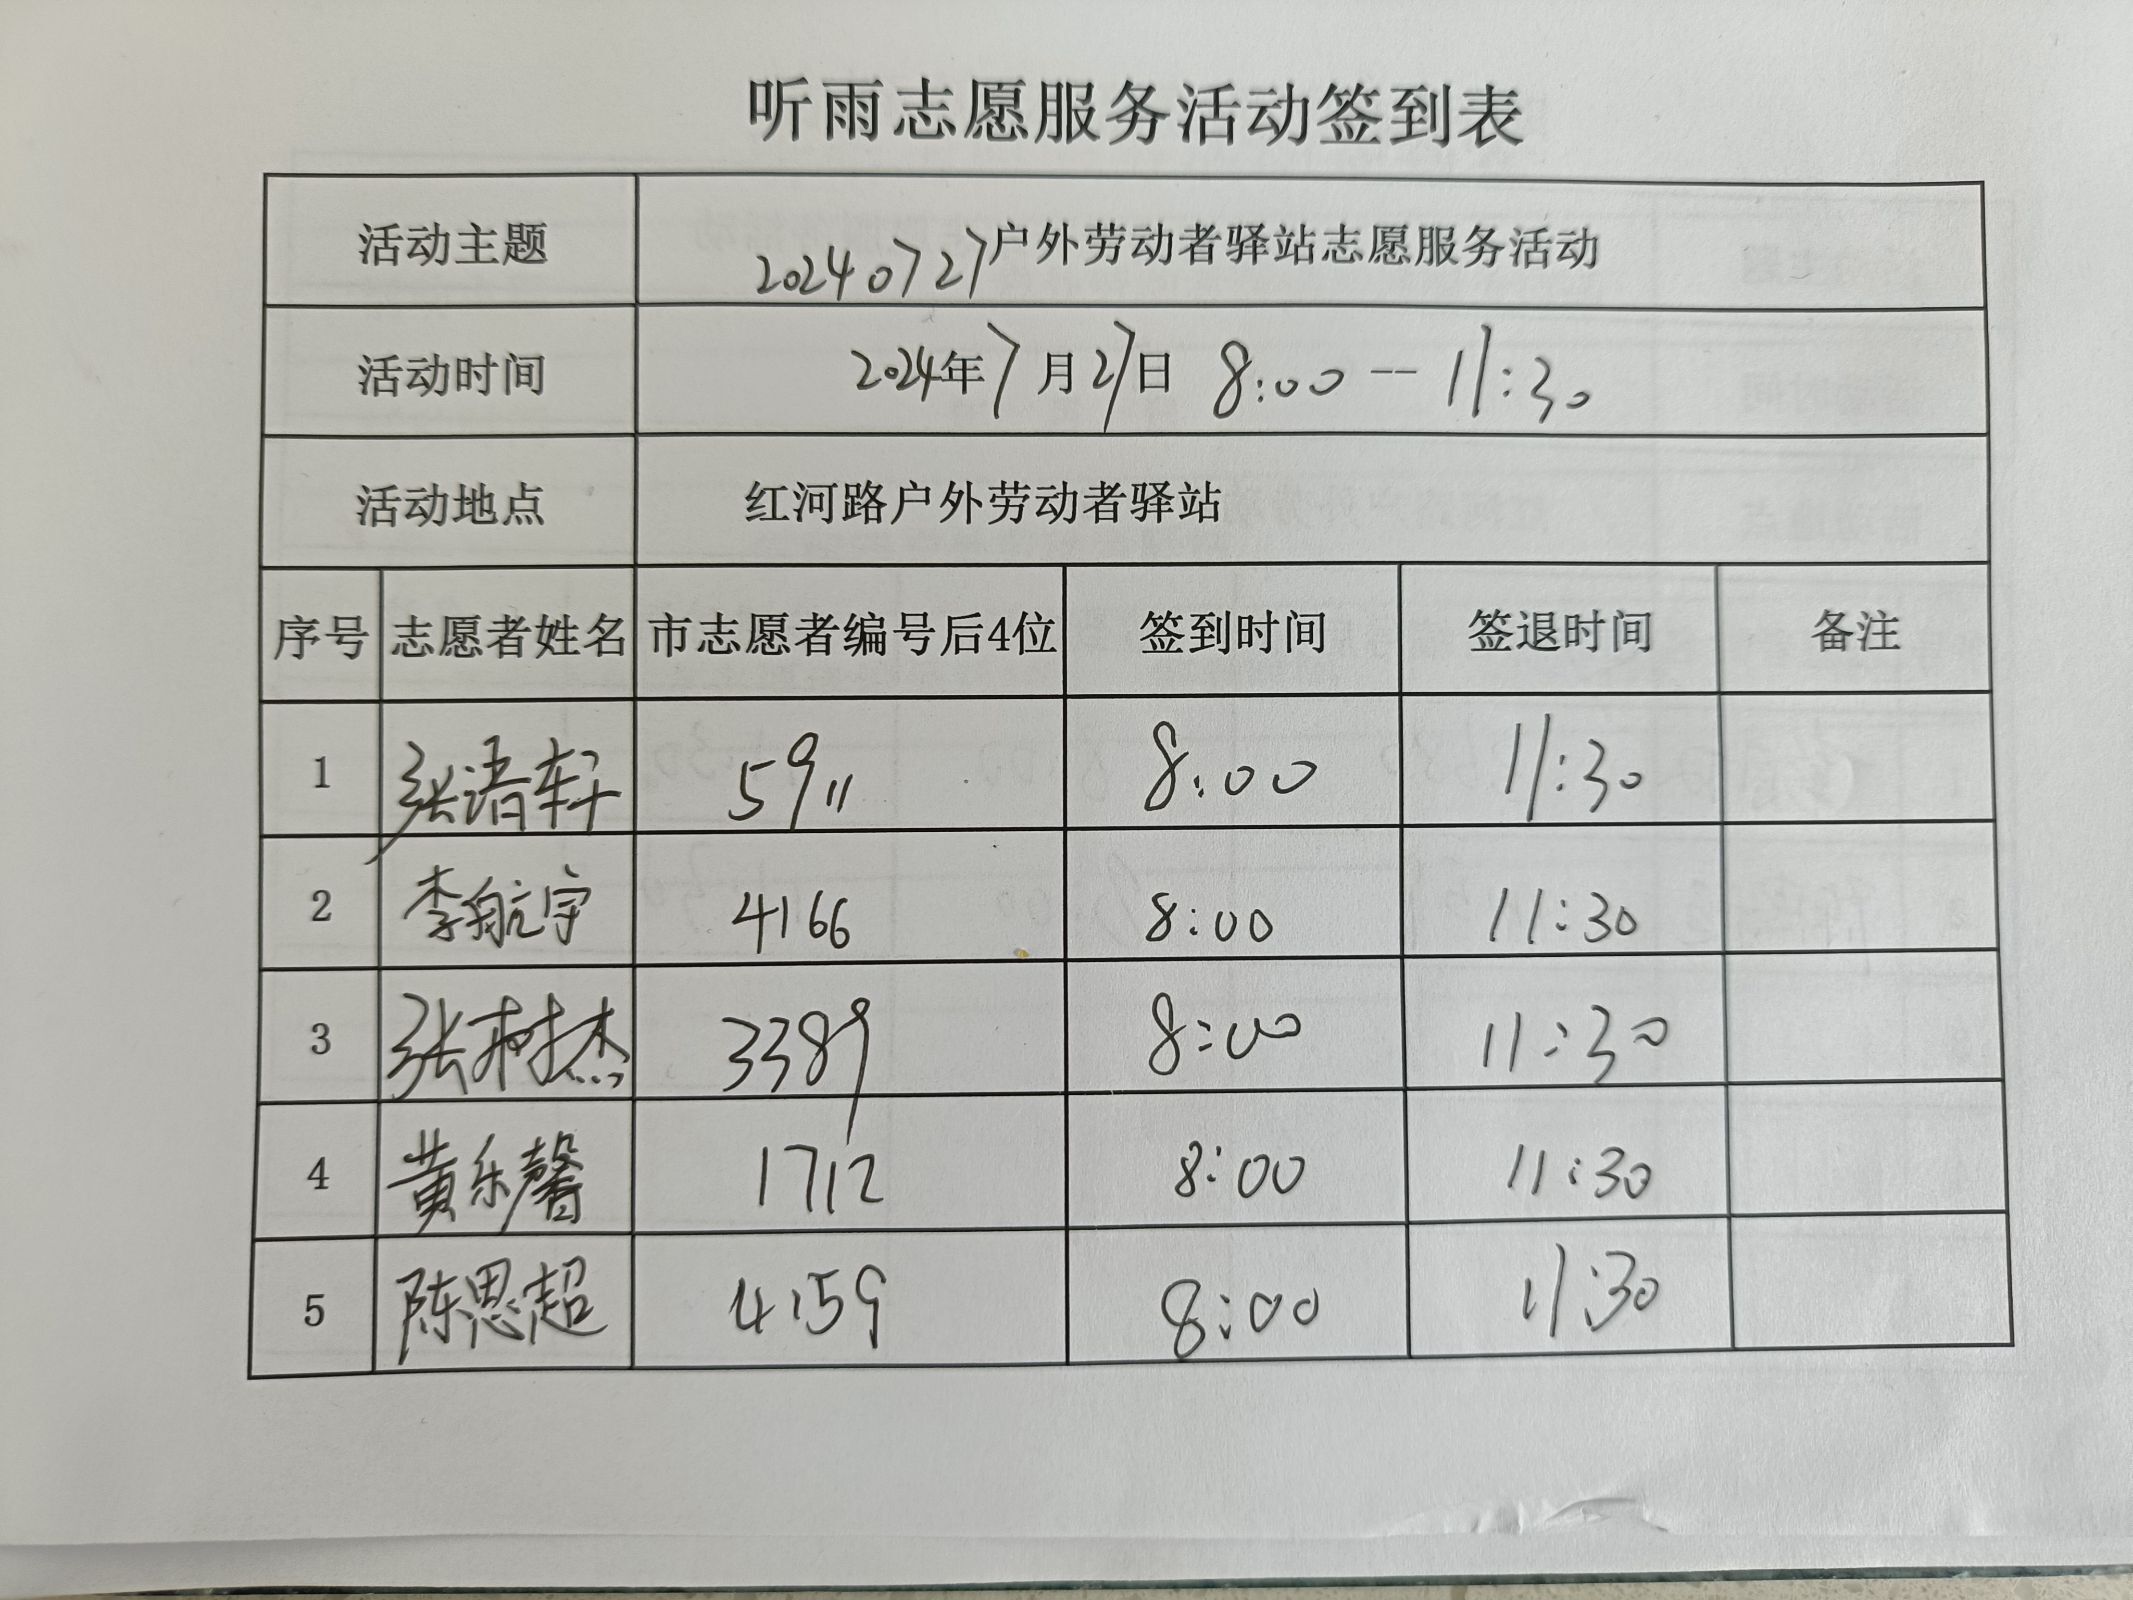 听雨志愿服务活动签到表
活动主题 20240727户外劳动者驿站志愿服务活动
活动时间 2024年7月27日 8:00--11:30
活动地点 红河路户外劳动者驿站
序号 志愿者姓名 市志愿者编号后4位 签到时间 签退时间 备注
1 张渚轩 5911 8:00 11:30
2 李航宇 4166 8:00 11:30
3 张树杰 3389 8:00 11:30
4 黄乐馨 1712 8:00 11:30
5 陈思超 4159 8:00 11:30